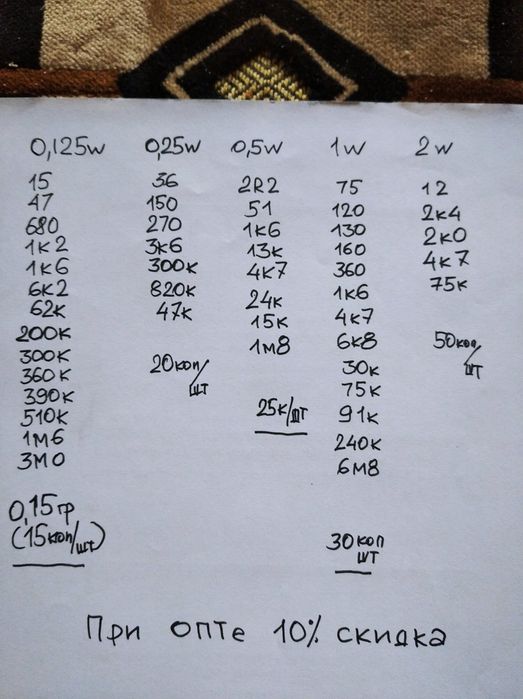 0,125w 0,25w 0,5w 1w 2w
15 36 2R2 75 12
47 150 51 120 2к4
680 270 1к6 130 2к0
1к2 3к6 13к 160 4к7
1к6 300к 4к7 360 75к
6к2 820к 24к 1к6
62к 47к 15к 4к7
200к 1м8 6к8 50коп/шт
300к 20коп/шт 30к
360к 75к
390к 25к/шт 91к
510к 240к
1м6 6м8
3м0
0,15гр
(15коп/шт) 30коп
шт
При опте 10% скидка